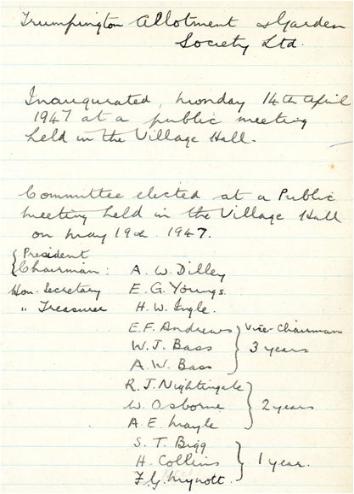 Trumpington Allotment & Garden
Society Ltd.
Inaugurated, Monday 14th April
1947 at a public meeting
held in the Village Hall.
Committee elected at a Public
meeting held in the Village Hall
on May 19th 1947.
{ President
{ Chairman: A. W. Dilley
Hon. Secretary E. G. Youngs
" Treasurer H. W. Ingle.
E.F. Andrews } Vice-Chairman
W. J. Bass } 3 years
A. W. Bass
R. J. Nightingale
W. Osborne } 2 years
A. E. Mayle
S. T. Bigg
H. Collins } 1 year.
F. G. Mynott.